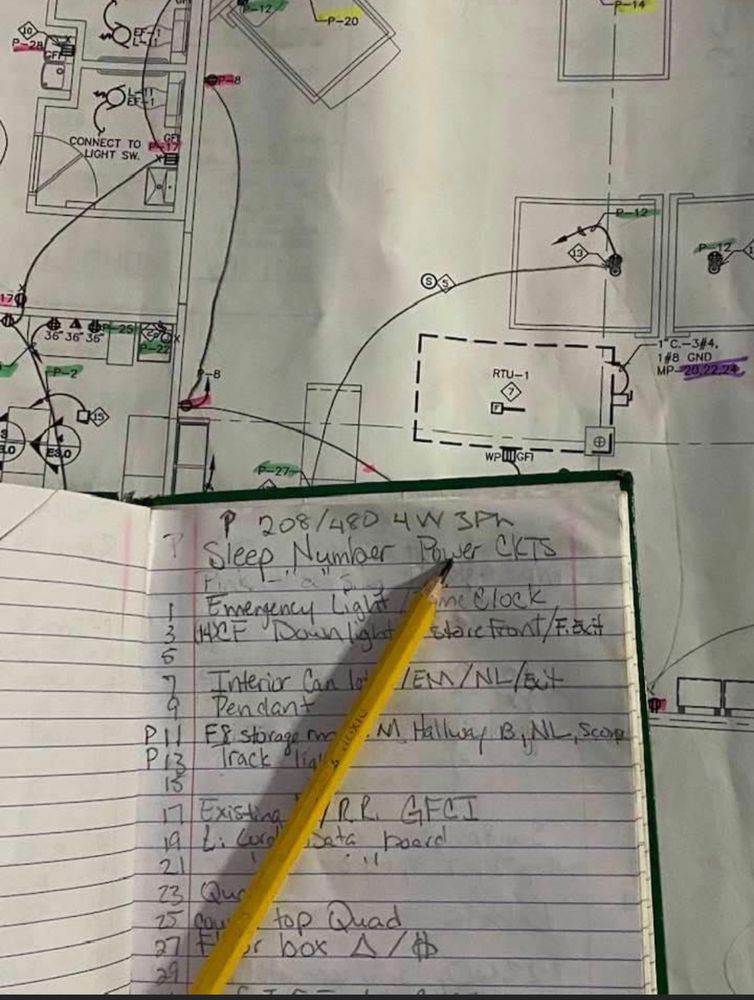 P-12
P-20
P-14
10
P-28
GFI
EF-1
L-1
P-8
EF-1
GFI
P-17
CONNECT TO
LIGHT SW.
P-12
13
P-12
S 5
17
P-25
36" 36" 36"
P-22
P-2
P-8
15
1"C.-3#4,
1#8 GND
MP-20,22,24
RTU-1
7
F
E3.0
WP GFI
P-27
P 208/480 4W 3Ph
Sleep Number Power CKTS
1 Emergency Light Clock
3 Downlight Storefront/F.Exit
5
7 Interior Can /EM/NL/Exit
9 Pendant
P 11 F8 storage Hallway B, NL, Sconce
P 13 Track
15
17 Existing /R.R. GFCI
19 Data board
21 " "
23
25 top Quad
27 box Δ/
29